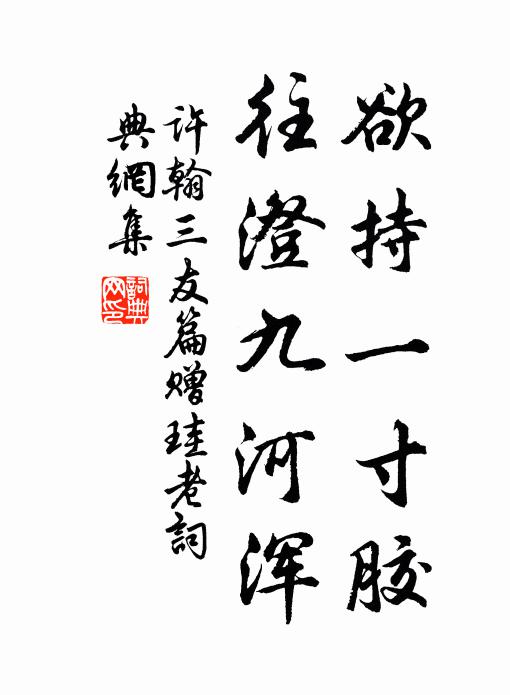 欲持一寸胶
往澄九河浑
许翰三友篇赠珪老詞
典網集
詞典网印